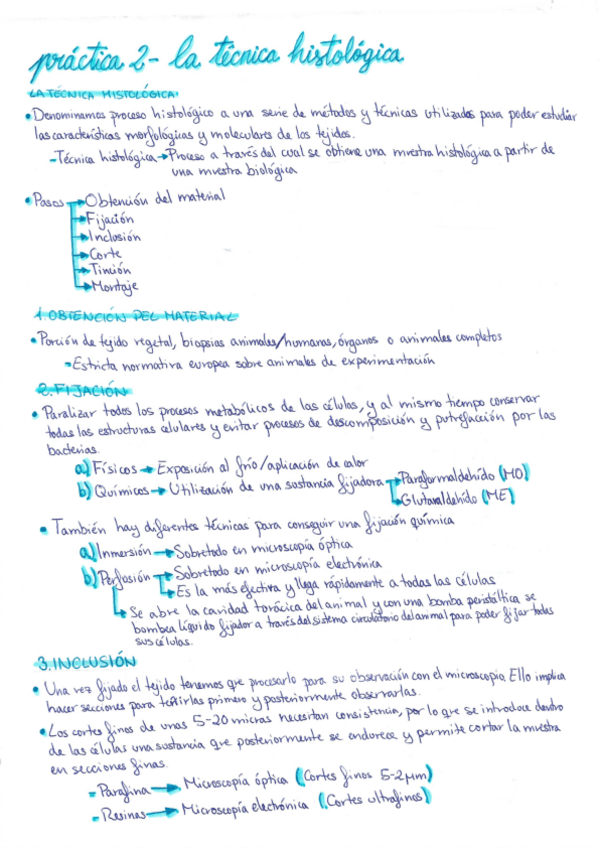 práctica 2- la técnica histológica
LA TÉCNICA HISTOLÓGICA:
• Denominamos proceso histológico a una serie de métodos y técnicas utilizados para poder estudiar
las características morfológicas y moleculares de los tejidos.
- Técnica histológica → Proceso a través del cual se obtiene una muestra histológica a partir de
una muestra biológica
• Pasos → Obtención del material
→ Fijación
→ Inclusión
→ Corte
→ Tinción
→ Montaje
1. OBTENCIÓN DEL MATERIAL
• Porción de tejido vegetal, biopsias animales/humanas, órganos o animales completos
→ Estricta normativa europea sobre animales de experimentación
2. FIJACIÓN
• Paralizar todos los procesos metabólicos de las células, y al mismo tiempo conservar
todas las estructuras celulares y evitar procesos de descomposición y putrefacción por las
bacterias.
a) Físicos → Exposición al frío/aplicación de calor
b) Químicos → Utilización de una sustancia fijadora → Paraformaldehído (MO)
→ Glutaraldehído (ME)
• También hay diferentes técnicas para conseguir una fijación química
a) Inmersión → Sobretodo en microscopía óptica
b) Perfusión → Sobretodo en microscopía electrónica
→ Es la más efectiva y llega rápidamente a todas las células
→ Se abre la cavidad torácica del animal y con una bomba peristáltica se
bombea líquido fijador a través del sistema circulatorio del animal para poder fijar todas
sus células.
3. INCLUSIÓN
• Una vez fijado el tejido tenemos que procesarlo para su observación con el microscopio. Ello implica
hacer secciones para teñirlas primero y posteriormente observarlas.
• Los cortes finos de unas 5-20 micras necesitan consistencia, por lo que se introduce dentro
de las células una sustancia que posteriormente se endurece y permite cortar la muestra
en secciones finas.
- Parafina → Microscopía óptica (Cortes finos 5-2µm)
- Resinas → Microscopía electrónica (Cortes ultrafinos)